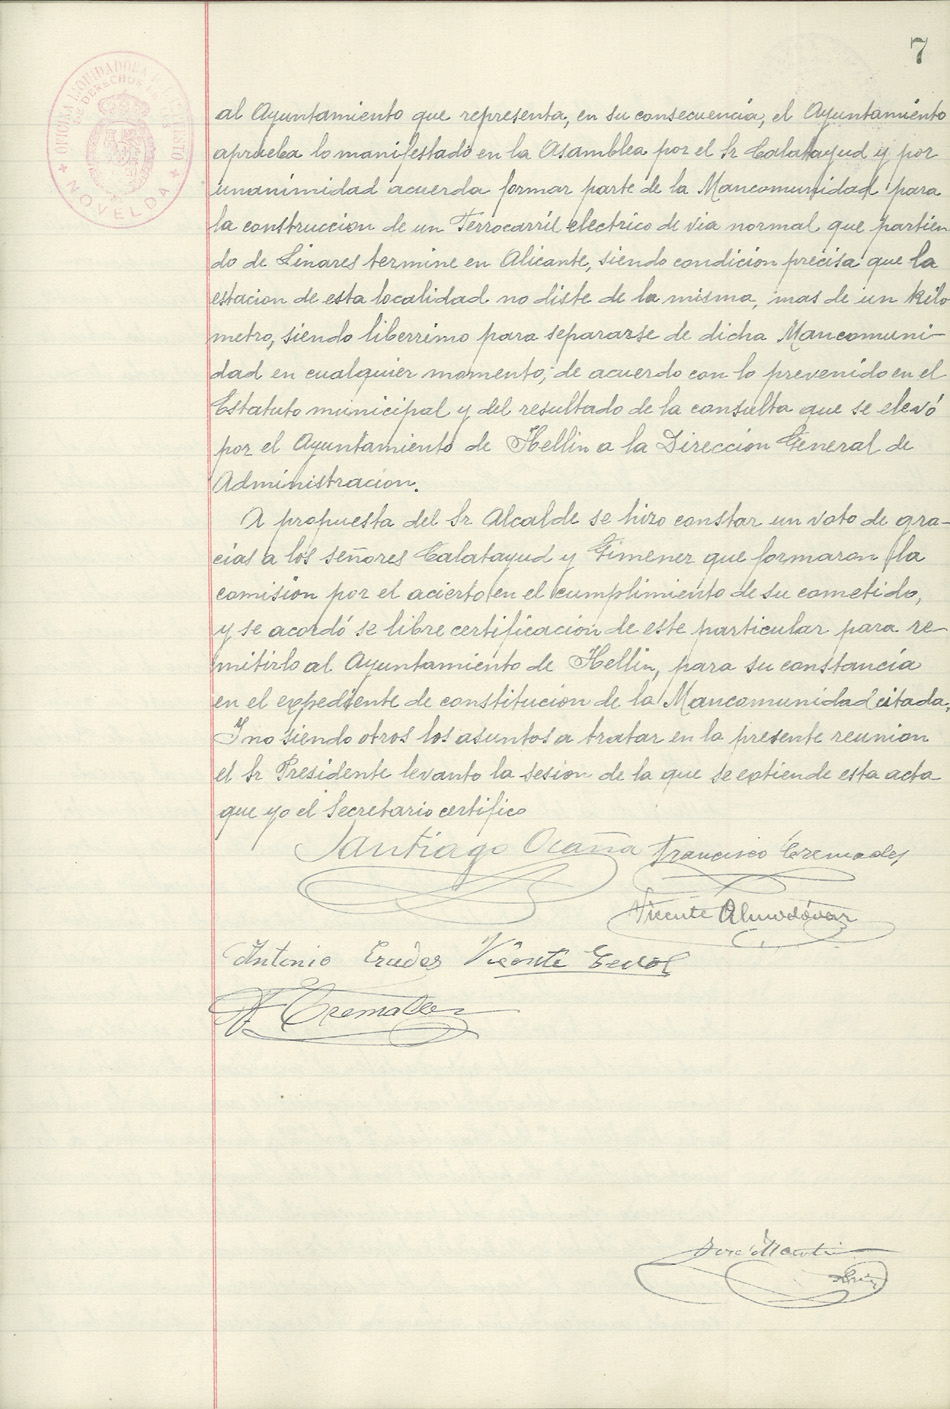 7
NOVELDA
al Ayuntamiento que representa, en su consecuencia, el Ayuntamiento
aprueba lo manifestado en la Asamblea por el Sr Calatayud y por
unanimidad acuerda formar parte de la Mancomunidad para
la construccion de un Ferrocarril electrico de via normal que partien
do de Linares termine en Alicante, siendo condicion precisa que la
estacion de esta localidad no diste de la misma, mas de un kilo
metro, siendo liberrimo para separarse de dicha Mancomuni-
dad en cualquier momento, de acuerdo con lo prevenido en el
Estatuto municipal y del resultado de la consulta que se elevó
por el Ayuntamiento de Hellin a la Dirección General de
Administración.
A propuesta del Sr Alcalde se hizo constar un voto de gra-
cias a los señores Calatayud y Gimenez que formaron la
comisión por el acierto en el cumplimiento de su cometido,
y se acordó se libre certificación de este particular para re-
mitirlo al Ayuntamiento de Hellin, para su constancia
en el expediente de constitucion de la Mancomunidad citada,
Y no siendo otros los asuntos a tratar en la presente reunion
el Sr Presidente levanto la sesion de la que se extiende esta acta
que yo el Secretario certifico
Santiago Ocaña Francisco Cremades
Vicente Almodóvar
Antonio Vicente
Cremades
José Martí